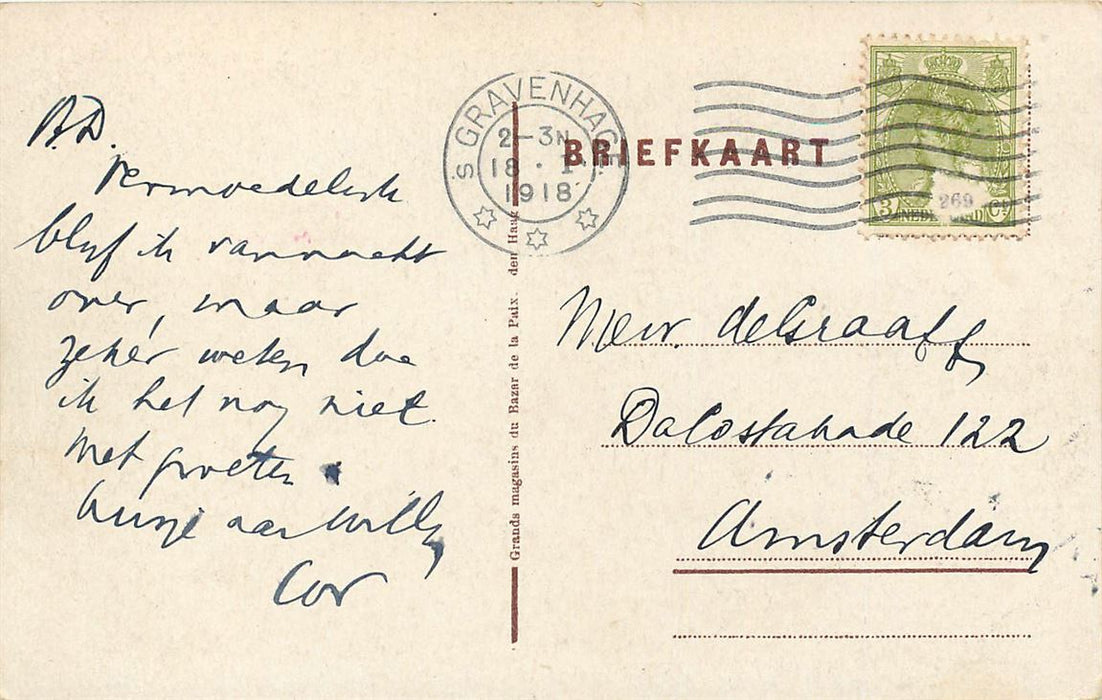 B.D.
Vermoedelijk
blijf ik vannacht
over, maar
zeker weten doe
ik het nog niet.
Met groeten
aan Willy
Cor
'S GRAVENHAGE
2-3N
18 . I
1918
BRIEFKAART
3 NEDERLAND Ct
269
Mevr. de Graaff
DaCostakade 122
Amsterdam
Grands magasins du Bazar de la Paix. den Haag